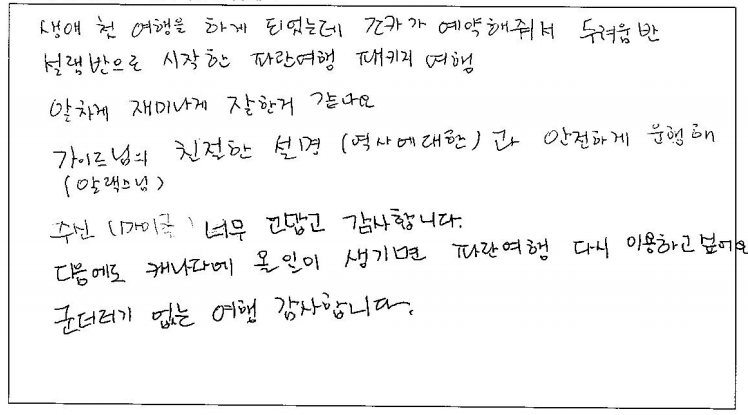 생애 첫 여행을 하게 되었는데 조카가 예약해줘서 두려움반
설램반으로 시작한 파란여행 패키지 여행
알차게 재미나게 잘한거 같나요
가이드님의 친절한 설명 (역사에대한)과 안전하게 운행해
(알랙스님)
주신 (마이클) 너무 고맙고 감사합니다.
다음에도 캐나다에 올일이 생기면 파란여행 다시 이용하고싶어요
군더더기 없는 여행 감사합니다.